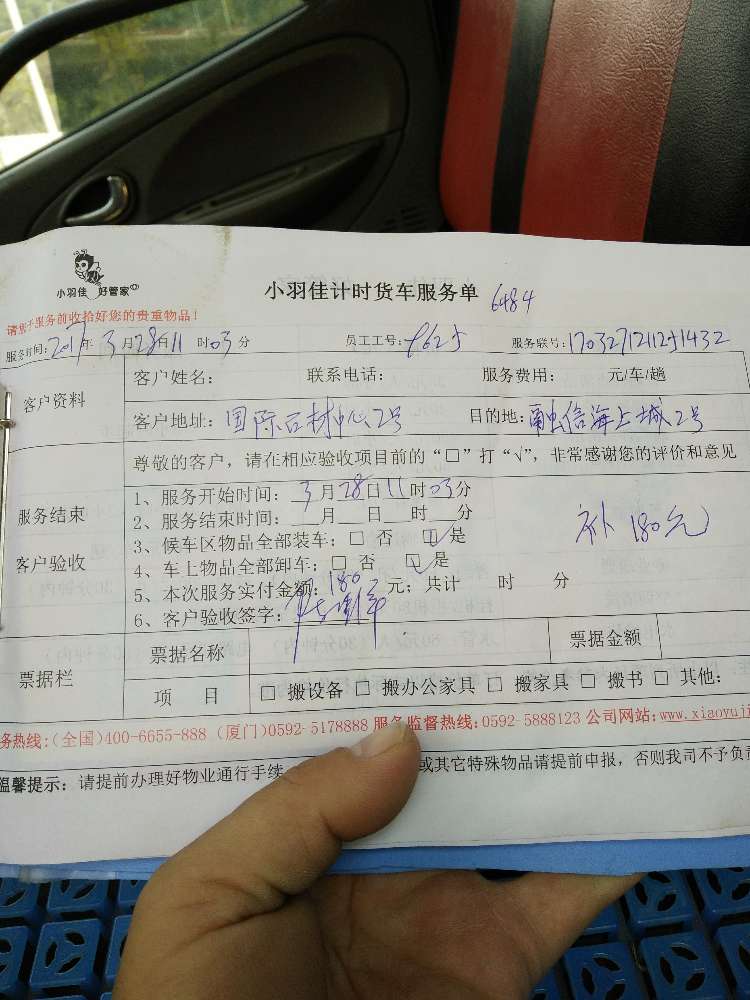 小羽佳 好管家
小羽佳计时货车服务单 6484
请您于服务前收拾好您的贵重物品！
服务时间：2017年 3月28日11时03分 员工工号： 服务联号：
客户资料
客户姓名： 联系电话： 服务费用： 元/车/趟
客户地址：国际石材中心2号 目的地：融信海上城2号
尊敬的客户，请在相应验收项目前的“□”打“√”，非常感谢您的评价和意见
服务结束
客户验收
1、服务开始时间：3月28日11时03分
2、服务结束时间：__月__日__时__分
3、候车区物品全部装车：□ 否 ☑ 是
4、车上物品全部卸车：□ 否 ☑ 是
补 180元
5、本次服务实付金额：180元；共计 时 分
6、客户验收签字：
票据栏
票据名称 票据金额
项 目 □ 搬设备 □ 搬办公家具 □ 搬家具 □ 搬书 □ 其他：
务热线：(全国)400-6655-888 (厦门)0592-5178888 服务监督热线：0592-5888123 公司网站：www.xiaoyuji
温馨提示：请提前办理好物业通行手续 或其它特殊物品请提前申报，否则我司不予负